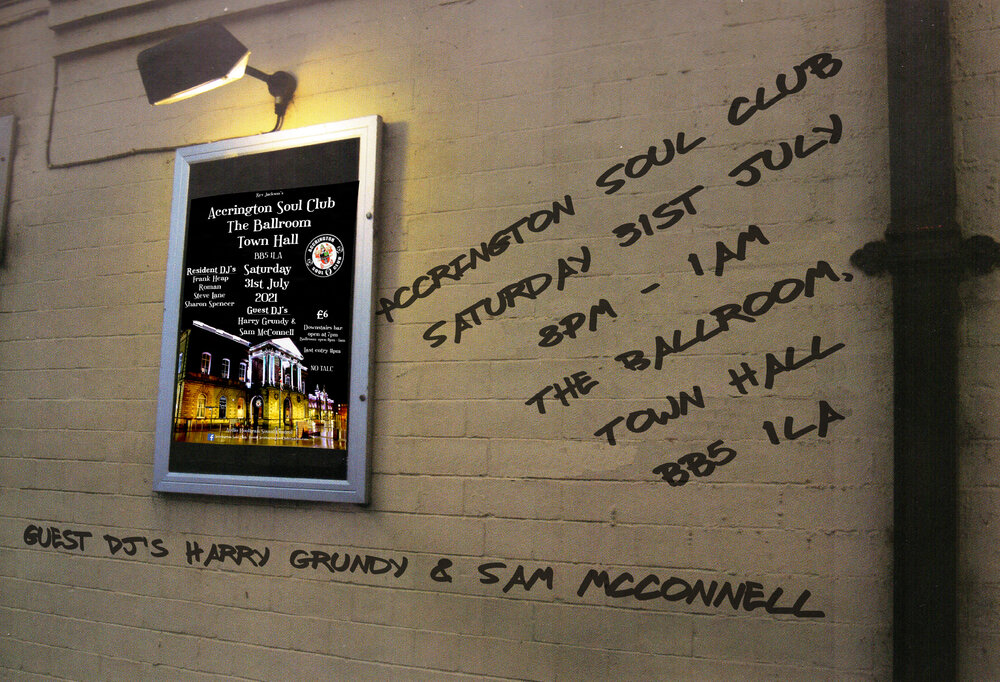 Kev Jackson's
Accrington Soul Club
The Ballroom
Town Hall
BB5 1LA
ACCRINGTON
SOUL CLUB
Resident DJ's
Frank Heap
Roman
Steve Lane
Sharon Spencer
Saturday
31st July
2021
Guest DJ's
Harry Grundy &
Sam McConnell
£6
Downstairs bar
open at 7pm
Ballroom open 8pm - 1am
last entry 11pm
NO TALC
ACCRINGTON SOUL CLUB
SATURDAY 31ST JULY
8PM - 1AM
THE BALLROOM,
TOWN HALL
BB5 1LA
GUEST DJ'S HARRY GRUNDY & SAM MCCONNELL